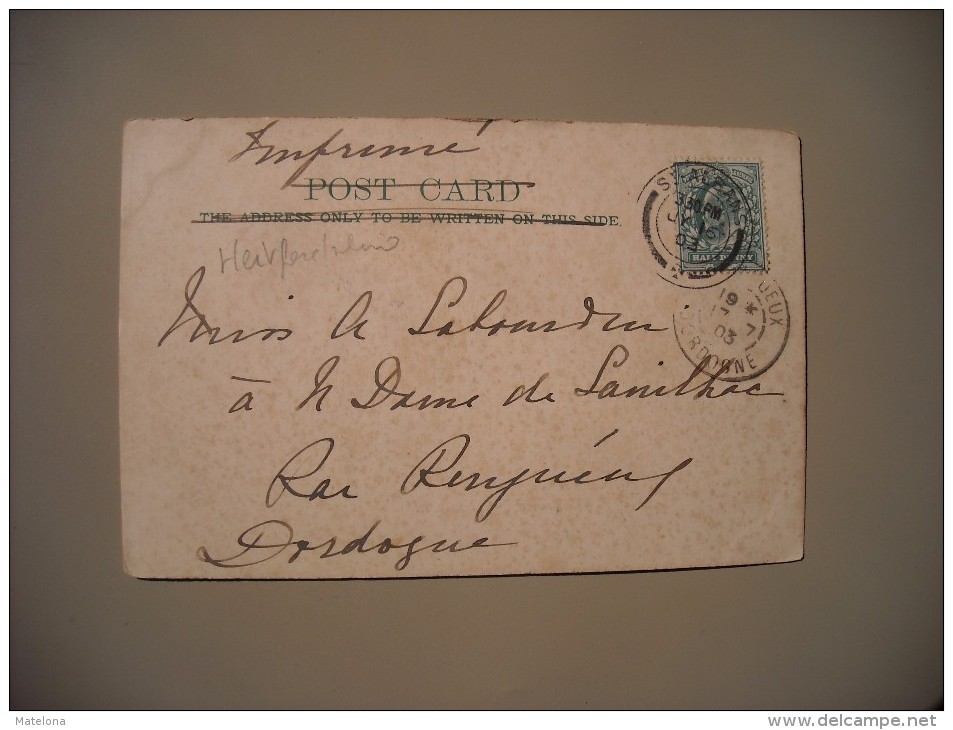 Imprimé
POST CARD
THE ADDRESS ONLY TO BE WRITTEN ON THIS SIDE.
ST ALBANS
3 30 PM
03
HALFPENNY
19
03
DORDOGNE
Miss A Labourdin
à N Dame de Sanilhac
Par
Dordogne
Matelona
www.delcampe.net